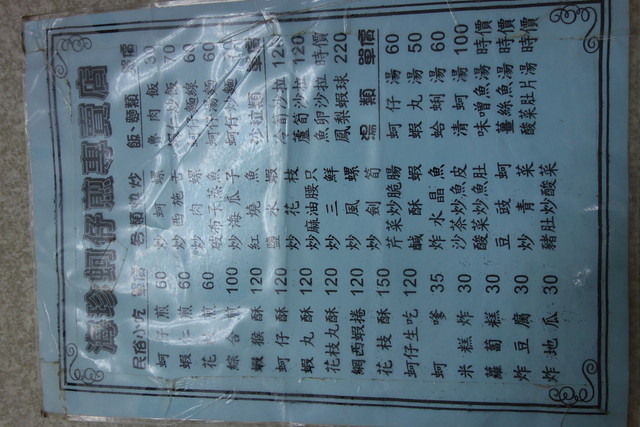 海珍蚵仔煎專賣店
民俗小吃 單價
蚵仔煎 60
蝦仁煎 60
花枝煎 60
綜合煎 100
蝦猴酥 120
蚵仔酥 120
蝦丸酥 120
花枝丸酥 120
網西蝦捲 120
花枝酥 150
蚵仔生吃 120
蚵嗲 35
米糕炸 30
蘿蔔糕 30
炸豆腐 30
炸地瓜 30
各類熱炒
炒蚵
炒螺肉
破布子蒸魚
炒海瓜子
紅燒魚
鹽水蝦
炒花枝
炒麻油腰只
炒三鮮
炒風螺
炒劍筍
芹菜炒脆腸
鹹酥蝦
炸水晶魚
沙茶炒魚皮
酸菜炒魚肚
豆豉蚵
炒青菜
豬肚炒酸菜
飯、麵類 單價
魯肉飯 30
蚵仔炒飯 70
蚵仔麵線 60
蚵仔湯麵 60
蚵仔炒麵
沙拉類 單價
冷筍沙拉 120
蘆筍沙拉 120
魚卵沙拉 時價
鳳梨蝦球 220
湯類 單價
蚵仔湯 60
蝦丸湯 50
蛤蜊湯 60
清蚵湯 100
味噌魚湯 時價
薑絲魚湯 時價
酸菜肚片湯 時價